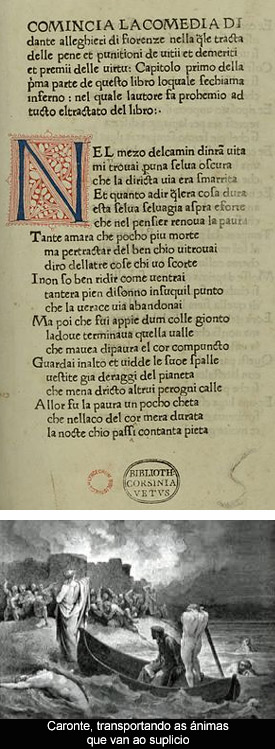 COMINCIA LACOMEDIA DI
dante alleghieri di fiorenze nella q̃le tracta
delle pene et punitioni de uitii et demeriti
et premii delle uirtu: Capitolo primo della
p̃ma parte de questo libro loquale sechiama
inferno: nel quale lautore fa prohemio ad
tucto eltractato del libro:·
NEL mezo delcamin dinr̃a uita
mi trouai p̃una selua oscura
che la diricta uia era smarrita
Et quanto adir q̃lera cosa dura
esta selua seluagia aspra eforte
che nel pensier renoua la paura
Tante amara che pocho piu morte
ma pertractar del ben chio uitrouai
diro dellatre cose chi uo scorte
I non so ben ridir come uentrai
tantera pien disonno insuquil punto
che la uerace uia abandonai
Ma poi che fui appie dum colle gionto
ladoue terminaua quella ualle
che mauea dipaura el cor compuncto
Guardai inalto et uidde le sue spalle
uestite gia deraggi del pianeta
che mena dricto altrui perogni calle
Allor fu la paura un pocho cheta
che nellaco del cor mera durata
la nocte chio passi contanta pieta
BIBLIOTH
CORSINIA
VETVS
Caronte, transportando as ánimas
que van ao suplicio